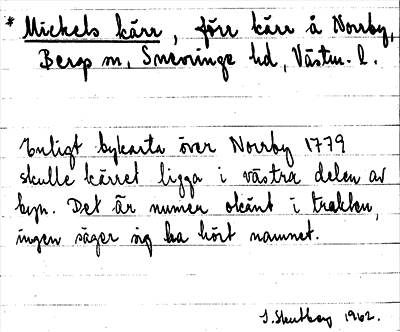 * Mickels kärr, förr kärr å Norrby,
Bergs sn, Snevringe hd, Västm. l.
Enligt bykarta över Norrby 1779
skulle kärret ligga i västra delen av
byn. Det är numer okänt i trakten,
ingen säger sig ha hört namnet.
1962.